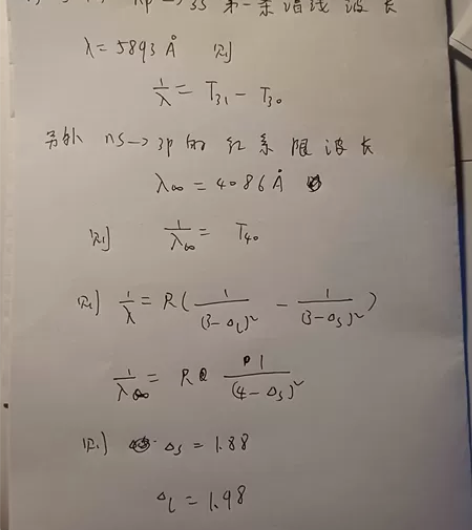 np→3s 第一条谱线波长
λ = 5893 Å 则
1/λ = T₃₁ − T₃₀
另外 ns→3p 的 红系限波长
λ∞ = 4086 Å
则 1/λ∞ = T₄₀
则 1/λ = R( 1/(3−Δl)² − 1/(3−Δs)² )
1/λ∞ = R 1/(4−Δs)²
则 Δs = 1.88
Δl = 1.98